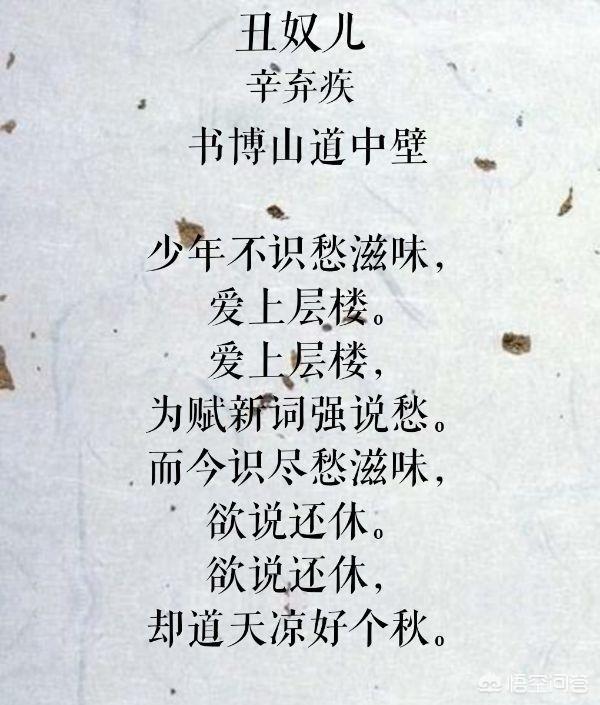 丑奴儿
辛弃疾
书博山道中壁
少年不识愁滋味，
爱上层楼。
爱上层楼，
为赋新词强说愁。
而今识尽愁滋味，
欲说还休。
欲说还休，
却道天凉好个秋。
悟空问答